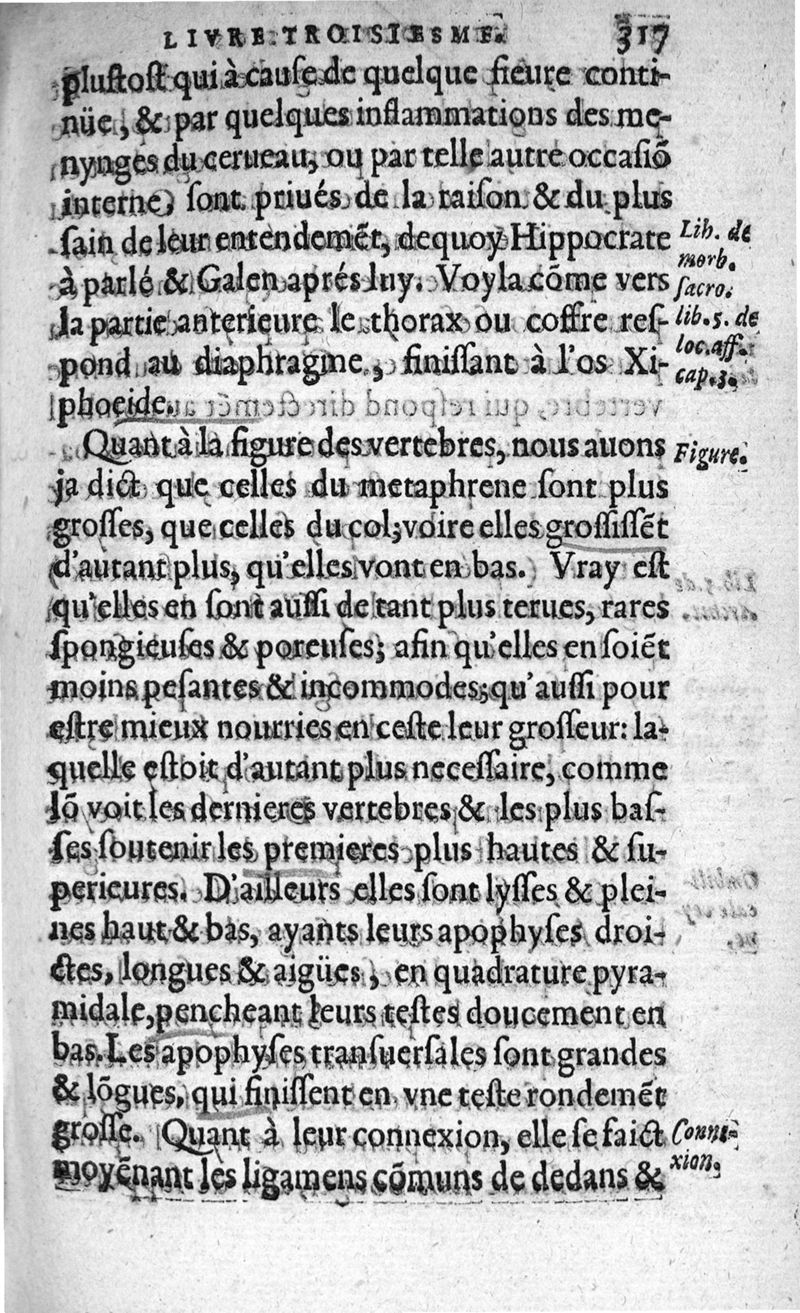 LIVRE TROISIESME. 317
plustost qui à cause de quelque fieure conti-
nüe, & par quelques inflammations des me-
nynges du cerueau, ou par telle autre occasiõ
interne, sont priués de la raison & du plus
sain de leur entendemẽt, dequoy Hippocrate
Lib. de
morb.
sacro.
à parlé & Galen aprés luy. Voyla cõme vers
la partie anterieure le thorax ou coffre res-
lib. 5. de
loc. aff.
cap. 3.
pond au diaphragme, finissant à l'os Xi-
phoeide.
Quant à la figure des vertebres, nous auons
Figure.
ja dict que celles du metaphrene sont plus
grosses, que celles du col; voire elles grossissẽt
d'autant plus, qu'elles vont en bas. Vray est
qu'elles en sont aussi de tant plus terues, rares
spongieuses & poreuses; afin qu'elles en soiẽt
moins pesantes & incommodes; qu'aussi pour
estre mieux nourries en ceste leur grosseur: la-
quelle estoit d'autant plus necessaire, comme
lõ voit les dernieres vertebres & les plus bas-
ses soutenir les premieres plus hautes & su-
perieures. D'ailleurs elles sont lysses & plei-
nes haut & bas, ayants leurs apophyses droi-
ctes, longues & aigües, en quadrature pyra-
midale, pencheant leurs testes doucement en
bas. Les apophyses transuersales sont grandes
& lõgues, qui finissent en vne teste rondemẽt
grosse. Quant à leur connexion, elle se faict
Conne-
xion.
moyẽnant les ligamens cõmuns de dedans &